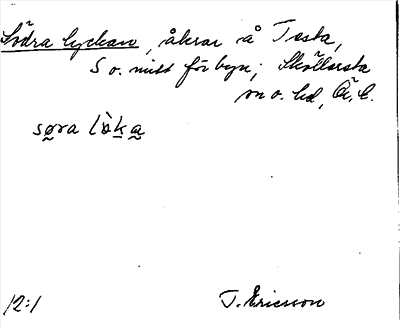 Södra lyckan, åkrar å Testa,
S o. mitt för byn; Sköllersta
sn o. hd, Ö. l.
søra lò̀ka
12:1
J. Ericsson